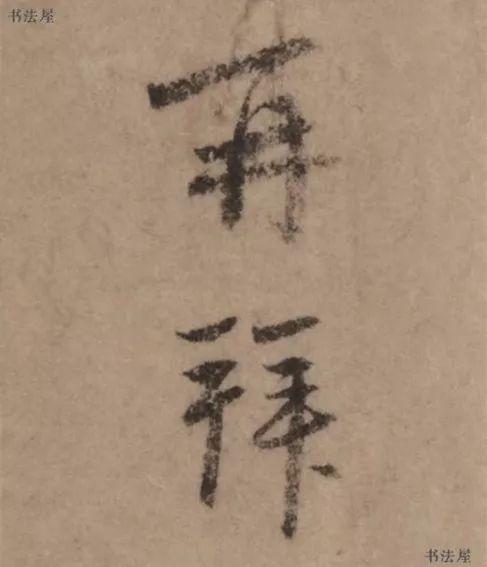 书法屋
再拜
书法屋